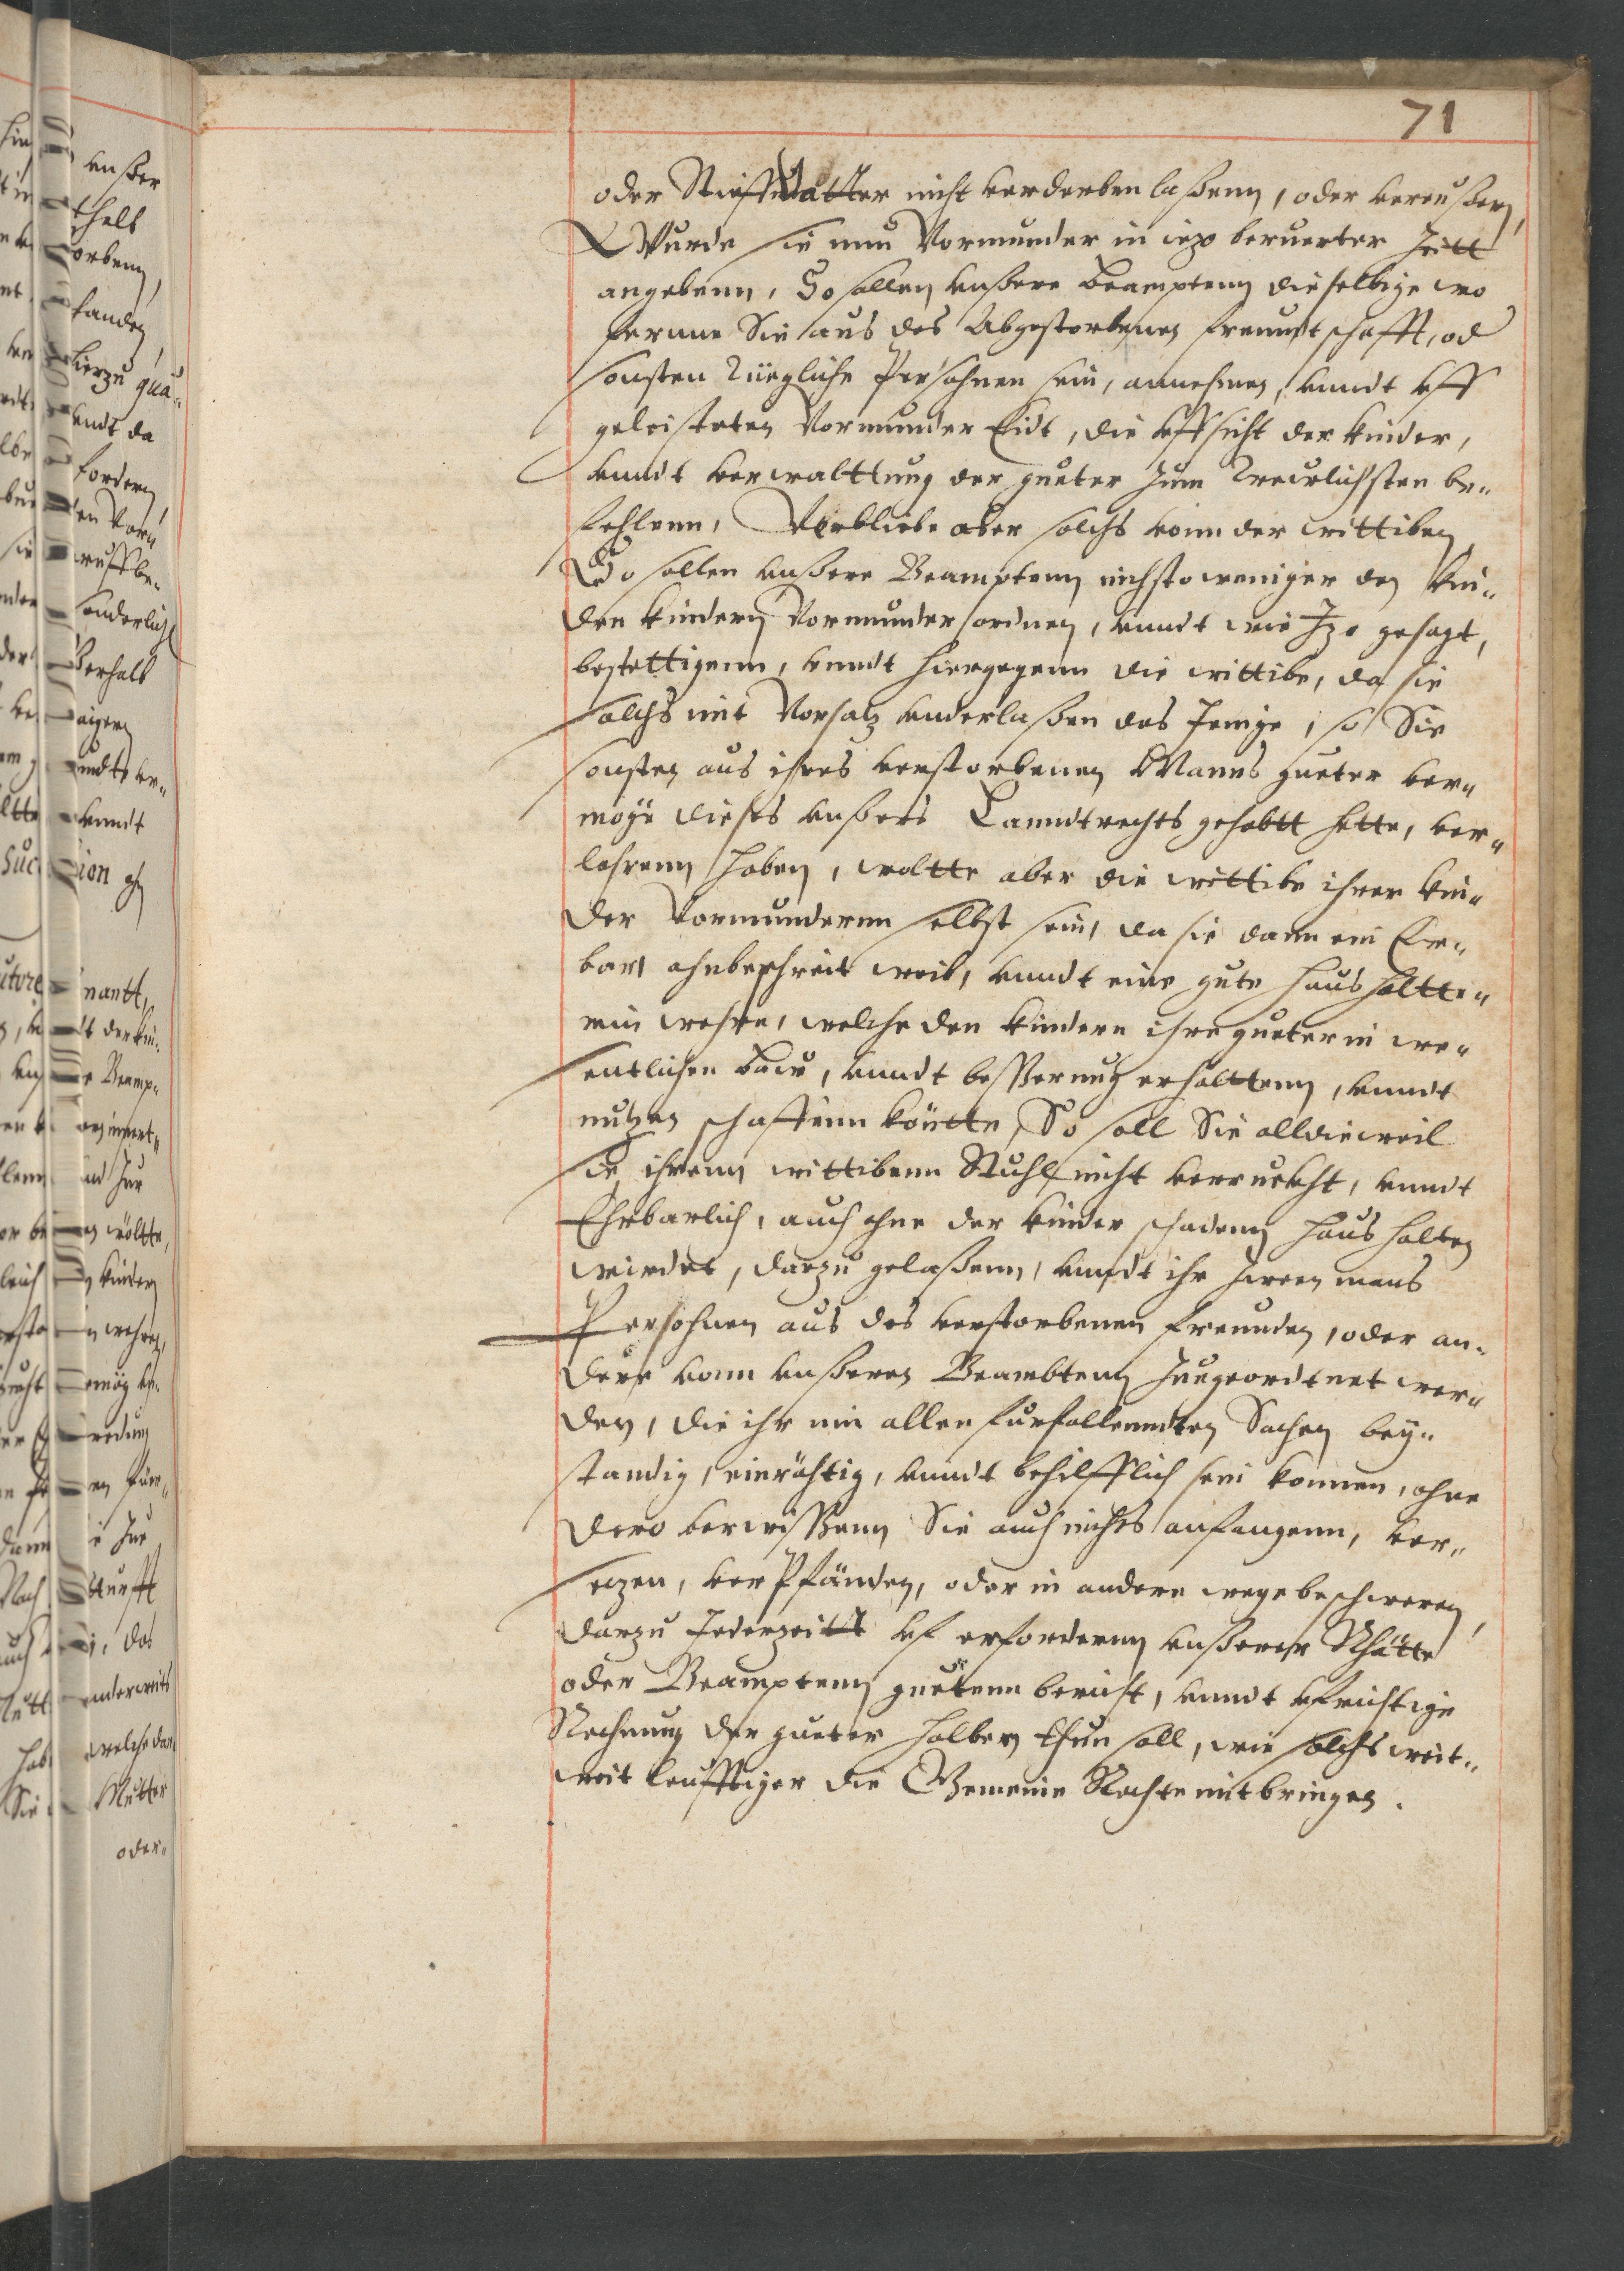 71
oder Stieffvatter nicht verderben laßenn, oder vereußern,
Wurde sie nun Vormunder in iezo beruerter Zeitt
angebenn, So sollen vnßere Beamptenn dieselbige wo
ferrne Sie aus des Abgestorbenen freundtschafft, od
sonsten Tüegliche Persohnen sein, annehmen, vnndt vff
geleisteten Vormunder Eidt, die vffsicht der kinder,
vnndt verwalttung der gueter zum Treulichsten be„
fehlenn, Verbliebe aber solchs vonn der wittiben
So sollen vnßere Beamptenn nichsto weniger den kin„
den kindern Vormunder ordnen, vnndt wie Izo gesagt,
bestettigenn, vnndt hiergegenn die wittibe, da sie
solchs mit Vorsatz vnderlaßen das Jenige, so Sie
sonsten aus ihres verstorbenen Manns gueter ver„
möge dieses vnßers Lanndtrechts gehabtt hette, ver„
lohrenn haben, woltte aber die wittibe ihrer kin„
der Vormunderinn selbst sein, da sie dann ein Er„
bar, ohnbeschreit weib, vnndt eine gute haushaltte„
rin wehre, welche den kindern ihre gueter in we„
sentlichen Bau, vnndt besserung erhalttenn, vnndt
nutzen schaffenn köntte, So soll Sie alldieweil
Sie ihrenn wittibenn Stuhl nicht verruckht, vnndt
Ehrbarlich, auch ohne der kinder schadenn haushalten
wirdet, darzu gelaßenn, vnndt ihr zween mans
Persohnen aus des verstorbenen freunden, oder an„
dere vonn vnßeren Beambtenn zuegeordtnet wer„
den, die ihr inn allen furfallendten Sachen bey„
standig, einräthig, vnndt behilfflich sein konnen, ohne
dero vorwißenn Sie auch nichts anfangenn, ver„
sezen, verPfänden, oder in andere wege beschweren,
darzu Jederzeitt vf erfordernn vnßerer Rhätte
oder Beamptenn guetenn bericht, vnndt vfrichtige
Rechnung der gueter halben thun soll, wie solchs weit„
weitleufftiger die Gemeine Rechte mitbringen.